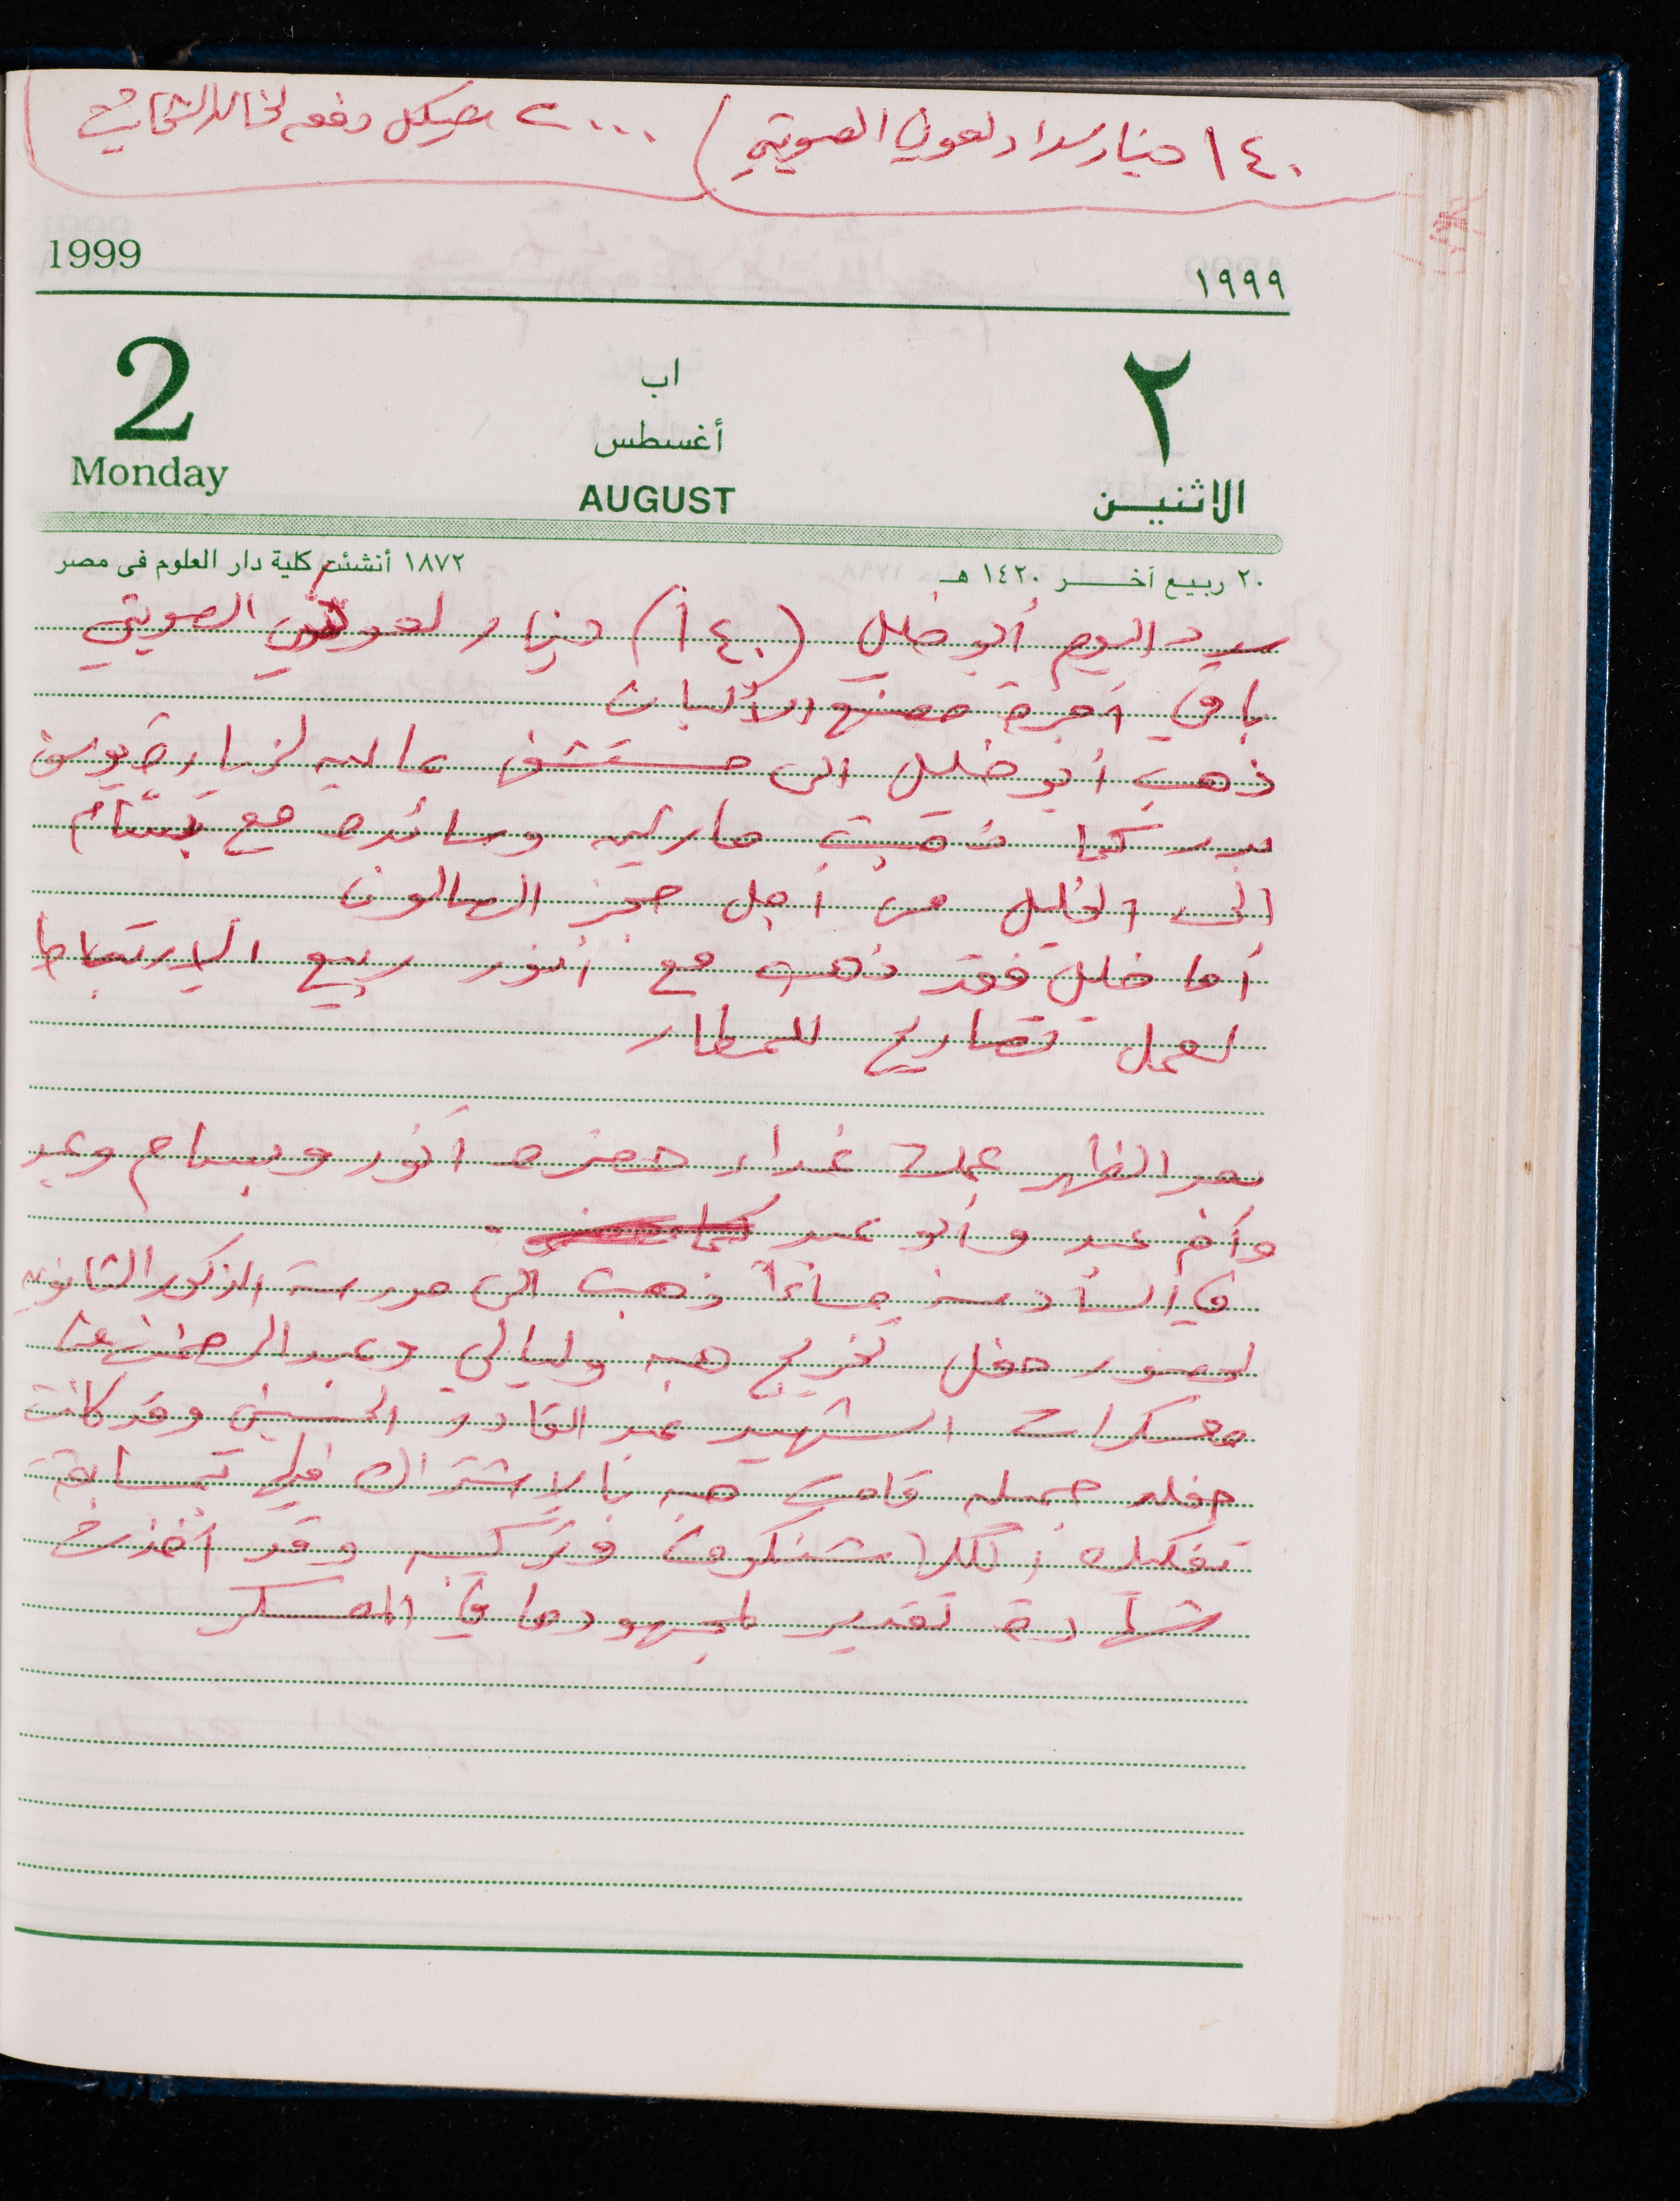 ١٤٠ دينار سداد لعوني الصويتي) ٢٠٠٠ شيكل دفع لخالد
1999 ١٩٩٩
2 اب ٢
أغسطس
Monday AUGUST الاثنين
٢٠ ربيع آخر ١٤٢٠ هـ ١٨٧٢ أنشئت كلية دار العلوم فى مصر
سدد اليوم أبو خليل (١٤٠) دينار لعوني الصويتي
باقي أجرة مصنع الألبان
ذهب أبو خليل الى مستشفى عاليه لزيارة يوسف
بدر كما ذهبت ماريه وسائده مع بسّام
إلى الخليل من أجل حجز الصالون
أما خليل فقد ذهب مع أنور ربيع الإرتباط
لعمل تصاريح للمطار
بعد الظهر عملت غداء حضره أنور وبسام وعبد
وأم عبد وأبو عبد
في السادسة مساءً ذهبت الى مدرسة الذكور الثانويه
لحضور حفل تخريج هبه وليالي وعبد الرحمن من
معسكرات الشهيد عبد القادر الحسيني وقد كانت
حفله جميله قامت هبه بالإشتراك في مسابقة
تفكيك الكلاشنكوف وتركيبه وقد أخذت
شهادة تقدير لمجهودها في المعسكر